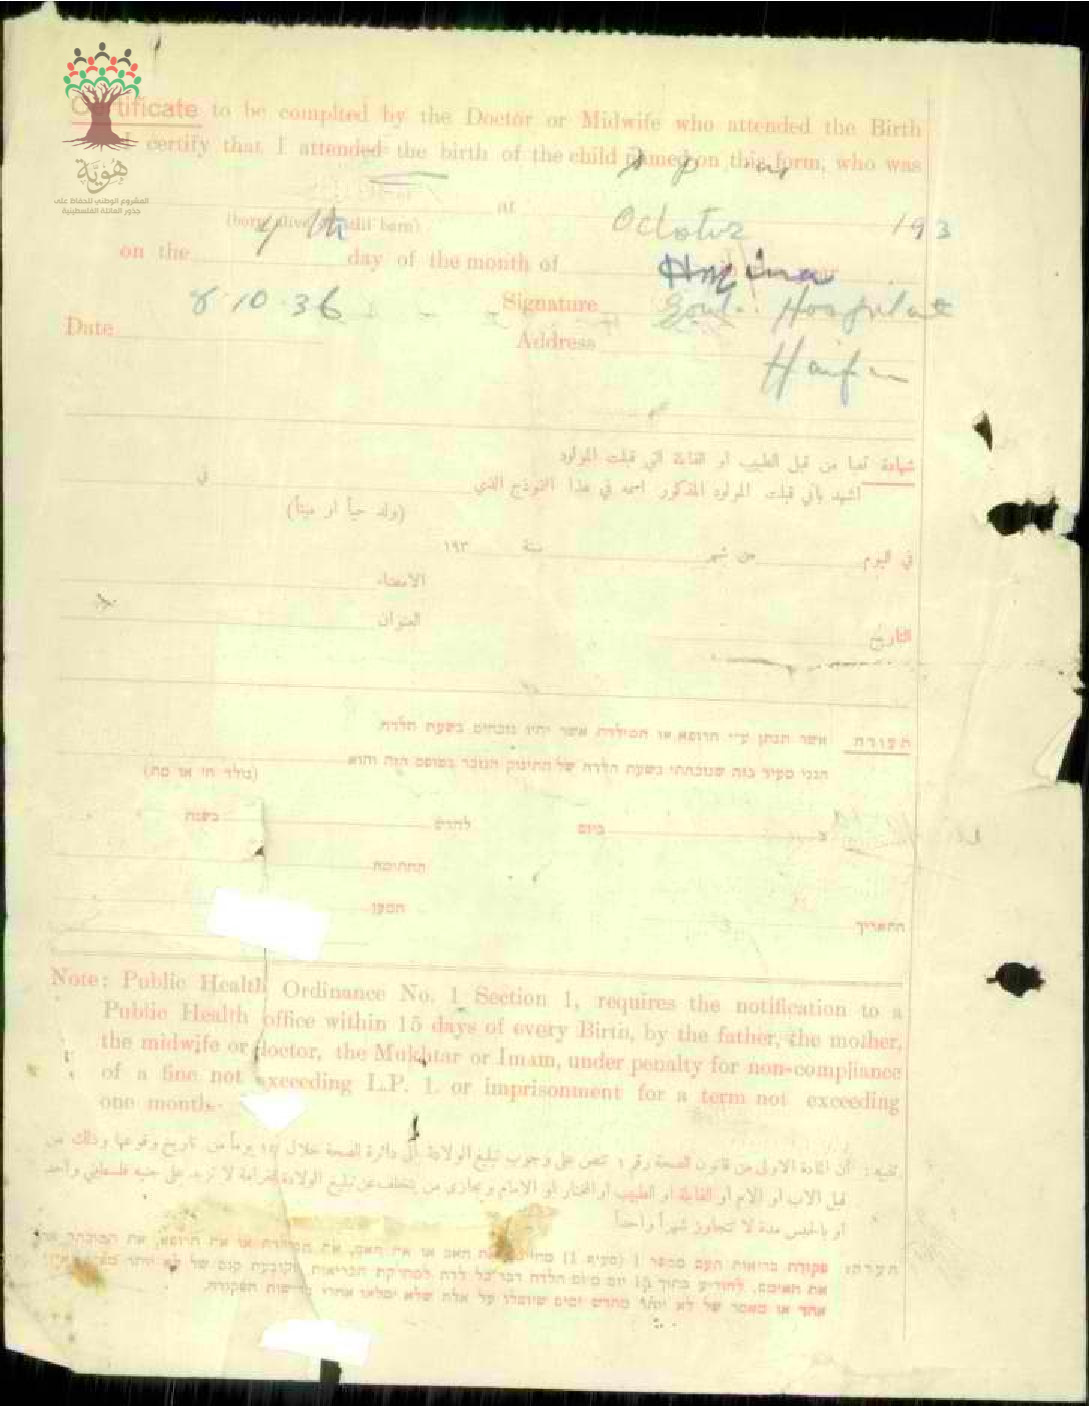 هوية
المشروع الوطني للحفاظ على
جذور العائلة الفلسطينية
Certificate to be complted by the Doctor or Midwife who attended the Birth
I certify that I attended the birth of the child named on this form, who was
at
(born alive or still born)
on the 7th day of the month of October 193
Signature
Date 8.10.36
Address Govt. Hospital
Haifa
شهادة تعبأ من قبل الطبيب او القابلة التي قبلت المولود
اشهد بأني قبلت المولود المذكور اسمه في هذا النموذج الذي في
(ولد حياً او ميتاً)
في اليوم من شهر سنة ١٩٣
الامضاء
العنوان
التاريخ
תעודה אשר תנתן ע״י הרופא או המילדת אשר יהיו נוכחים בשעת הלדה
הנני מעיד בזה שנוכחתי בשעת הלדה של התינוק הנזכר בטופס הזה והוא
(נולד חי או מת)
ב ביום לחדש בשנת
החתימה
המען
התאריך
Note: Public Health Ordinance No. 1 Section 1, requires the notification to a
Public Health office within 15 days of every Birth, by the father, the mother,
the midwife or doctor, the Mukhtar or Imam, under penalty for non-compliance
of a fine not exceeding L.P. 1. or imprisonment for a term not exceeding
one month.
تنبيه: أن المادة الاولى من قانون الصحة رقم ١ تنص على وجوب تبليغ الولادة الى دائرة الصحة خلال ١٥ يوماً من تاريخ وقوعها وذلك من
قبل الاب او الام أو القابلة او الطبيب او المختار او الامام ويجازى من يتخلف عن تبليغ الولادة بغرامة لا تزيد على جنيه فلسطيني واحد
او بالحبس مدة لا تتجاوز شهراً واحداً
הערה: פקודת בריאות העם מספר 1 (סעיף 1) את האב או את האם, את המילדת או את הרופא, את המוכתר או
את האימם, להודיע בתוך 15 יום מיום הלדה דבר כל לדה למחלקת הבריאות, וקובעת קנס של לא יותר
אחד או מאסר של לא יותר מחדש ימים שיוטלו על אלה שלא ימלאו אחרי דרישות הפקודה.